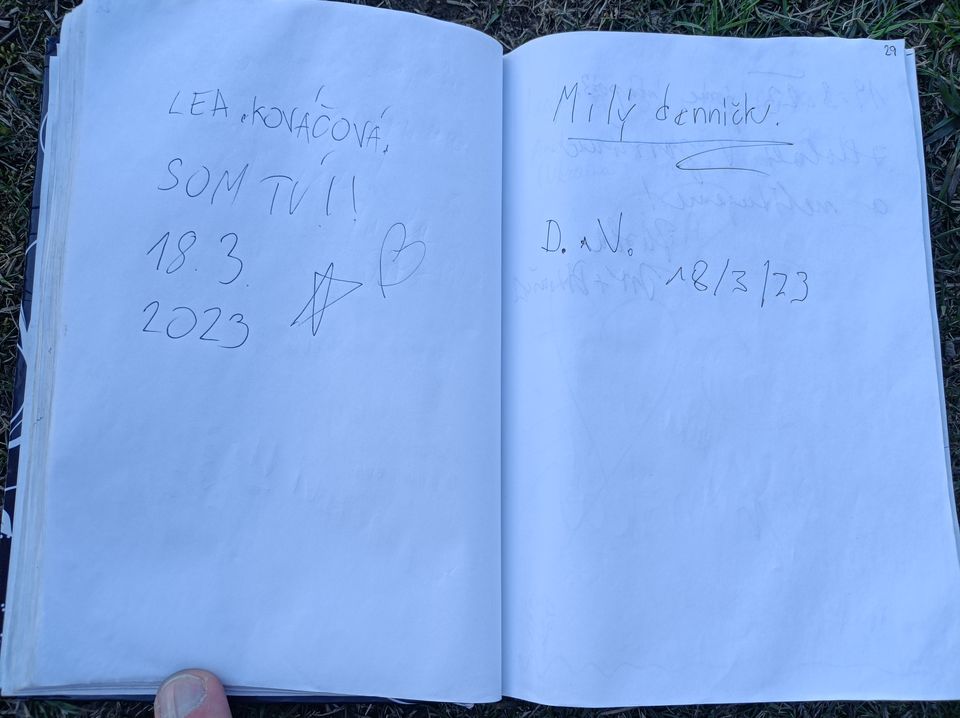 LEA KOVÁČOVÁ,
SOM TVÍ!!
18.3.
2023
29
Milý denníčku.
D. N.
18/3/23